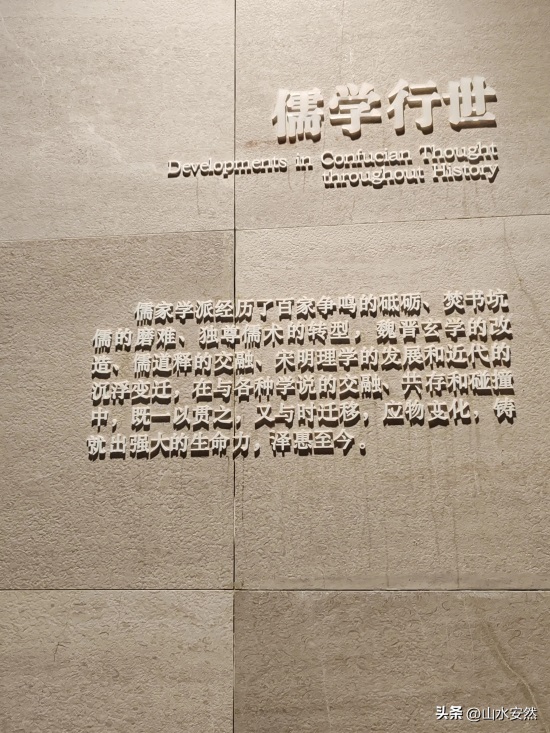 儒学行世
Developments in Confucian Thought
throughout History
儒家学派经历了百家争鸣的砥砺、焚书坑
儒的磨难、独尊儒术的转型，魏晋玄学的改
造、儒道释的交融、朱明理学的发展和近代的
沉浮变迁，在与各种学说的交融、共存和碰撞
中，既一以贯之，又与时迁移，应物变化，铸
就出强大的生命力，泽惠至今。
头条 @山水安然